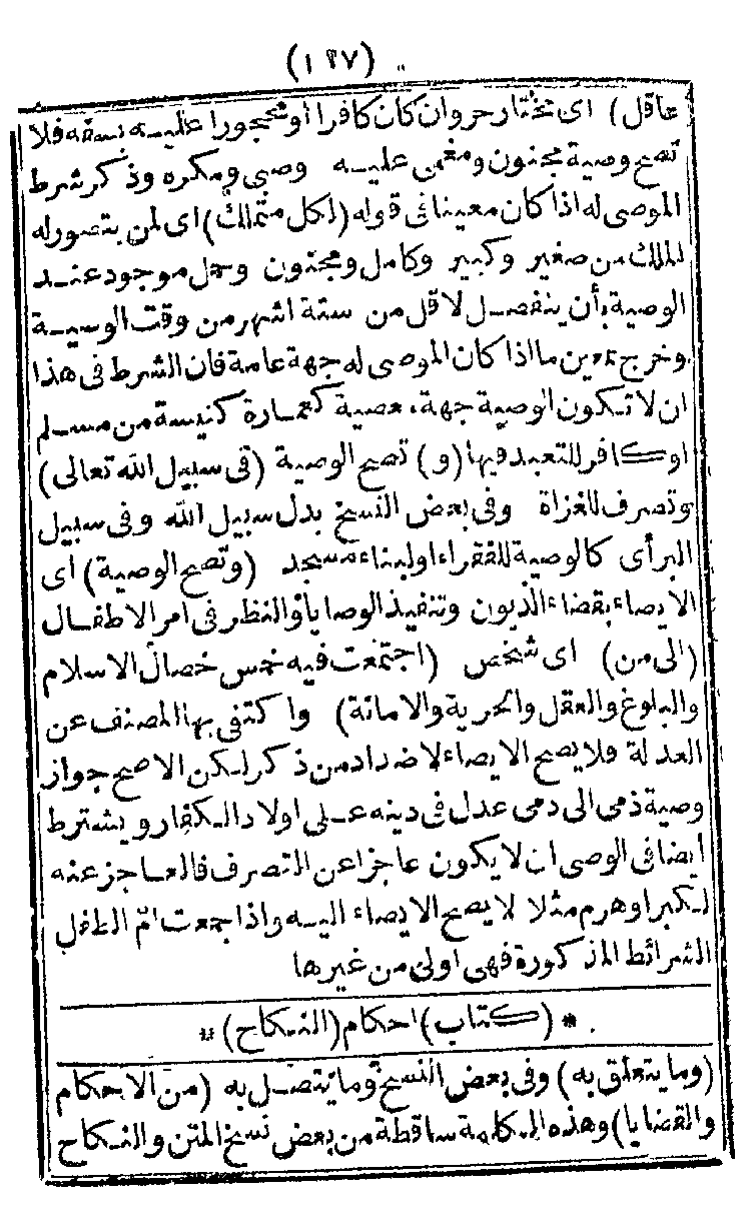 (١٣٧)
عاقل) اى مختار حر وان كان كافرا أو محجورا عليه بسفه فلا
تصح وصية مجنون ومغمى عليه وصبى ومكره وذكر شرط
الموصى له اذا كان معينا فى قوله (لكل متملك) اى لمن يتصور له
الملك من صغير وكبير وكامل ومجنون وحمل موجود عند
الوصية بأن ينفصل لاقل من ستة اشهر من وقت الوصية
وخرج بمعين ما اذا كان الموصى له جهة عامة فان الشرط فى هذا
ان لا تكون الوصية جهة معصية كعمارة كنيسة من مسلم
او كافر للتعبد فيها (و) تصح الوصية (فى سبيل الله تعالى)
وتصرف للغزاة وفى بعض النسخ بدل سبيل الله وفى سبيل
البر أى كالوصية للفقراء او لبناء مسجد (وتصح الوصية) اى
الايصاء بقضاء الديون وتنفيذ الوصايا والنظر فى امر الاطفال
(الى من) اى شخص (اجتمعت فيه خمس خصال الاسلام
والبلوغ والعقل والحرية والامانة) واكتفى بها المصنف عن
العدالة فلا يصح الايصاء لاضداد من ذكر لكن الاصح جواز
وصية ذمى الى ذمى عدل فى دينه على اولاد الكفار ويشترط
ايضا فى الوصى ان لا يكون عاجزا عن التصرف فالعاجز عنه
لكبر او هرم مثلا لا يصح الايصاء اليه واذا جمعت ام الطفل
الشرائط المذكورة فهى اولى من غيرها
* (كتاب) احكام (النكاح) *
(وما يتعلق به) وفى بعض النسخ وما يتصل به (من الاحكام
والقضايا) وهذه الكلمة ساقطة من بعض نسخ المتن والنكاح